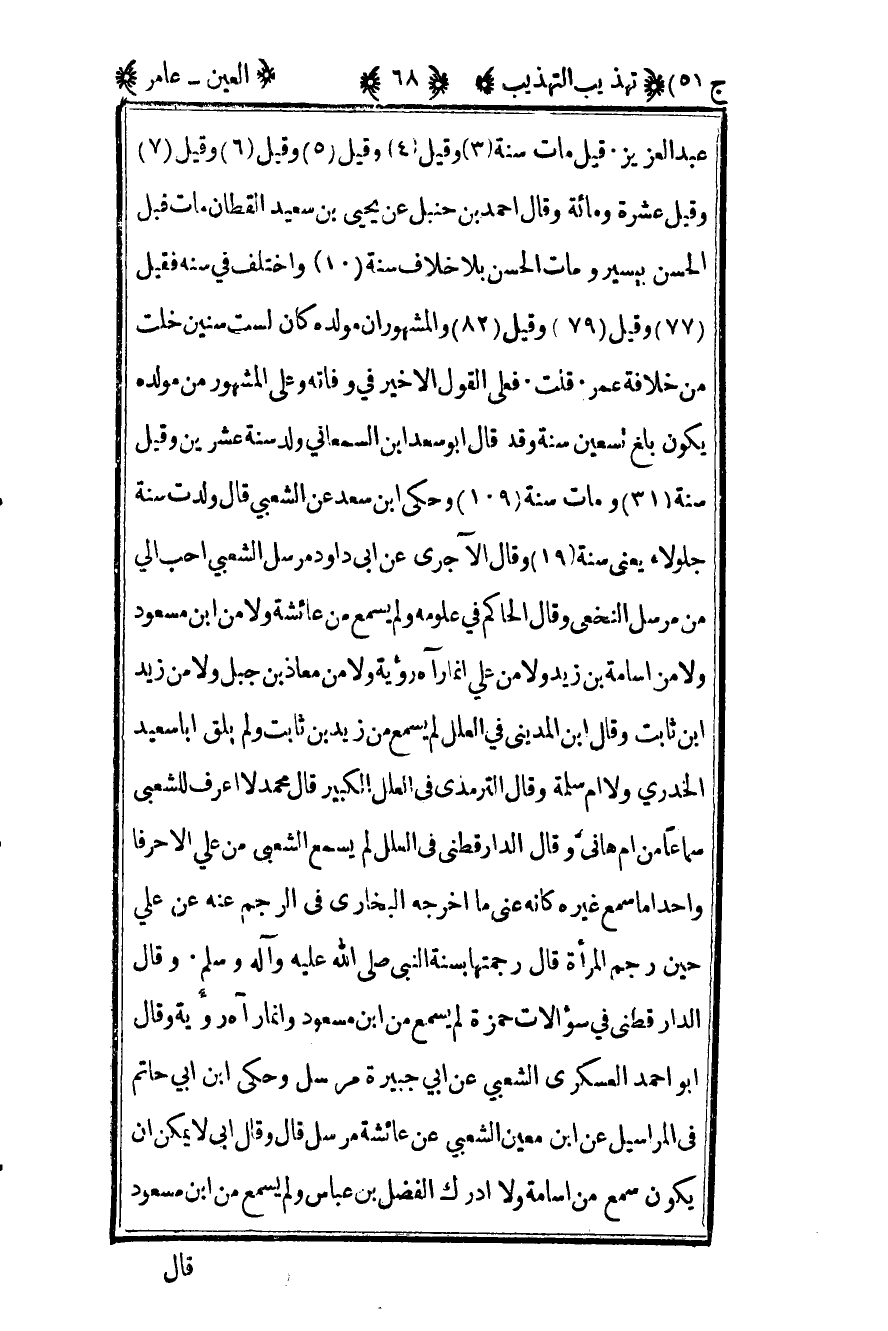 ج (٥١) ﴿ تهذيب التهذيب ﴾ ﴿ ٦٨ ﴾ ﴿ العين ـ عامر ﴾
عبدالعزيز ۰ قيل مات سنة (٣) وقيل (٤) وقيل (٥) وقيل (٦) وقيل (٧)
وقيل عشرة ومائة وقال احمد بن حنبل عن يحيى بن سعيد القطان مات قبل
الحسن بيسير و مات الحسن بلا خلاف سنة (١٠) واختلف في سنه فقيل
(٧٧) وقيل (٧٩) وقيل (٨٢) والمشهور ان مولده كان لست سنين خلت
من خلافة عمر ۰ قلت ۰ فعلى القول الاخير في و فاته وعلى المشهور من مولده
يكون بلغ تسعين سنة وقد قال ابوسعد ابن السمعاني ولد سنة عشرين وقيل
سنة (٣١) و مات سنة (١٠٩) وحكى ابن سعد عن الشعبي قال ولدت سنة
جلولاء يعنى سنة (١٩) وقال الآجرى عن ابى داود مرسل الشعبي احب الي
من مرسل النخعى وقال الحاكم في علومه ولم يسمع من عائشة ولا من ابن مسعود
ولا من اسامة بن زيد ولا من علي انما رآه رؤية ولا من معاذ بن جبل ولا من زيد
ابن ثابت وقال ابن المدينى في العلل لم يسمع من زيد بن ثابت ولم يلق اباسعيد
الخدري ولا ام سلمة وقال الترمذى فى العلل الكبير قال محمد لا اعرف للشعبى
سماعاً من ام هانئ و قال الدارقطنى فى العلل لم يسمع الشعبى من علي الا حرفا
واحداما سمع غيره كانه عنى ما اخرجه البخارى فى الرجم عنه عن علي
حين رجم المرأة قال رجمتها بسنة النبى صلى الله عليه وآله و سلم ۰ و قال
الدار قطنى في سؤالات حمزة لم يسمع من ابن مسعود وانما رآه رؤية وقال
ابو احمد العسكرى الشعبي عن ابي جبيرة مرسل وحكى ابن ابي حاتم
فى المراسيل عن ابن معين الشعبي عن عائشة مرسل قال وقال ابى لا يمكن ان
يكون سمع من اسامة ولا ادرك الفضل بن عباس ولم يسمع من ابن مسعود
قال